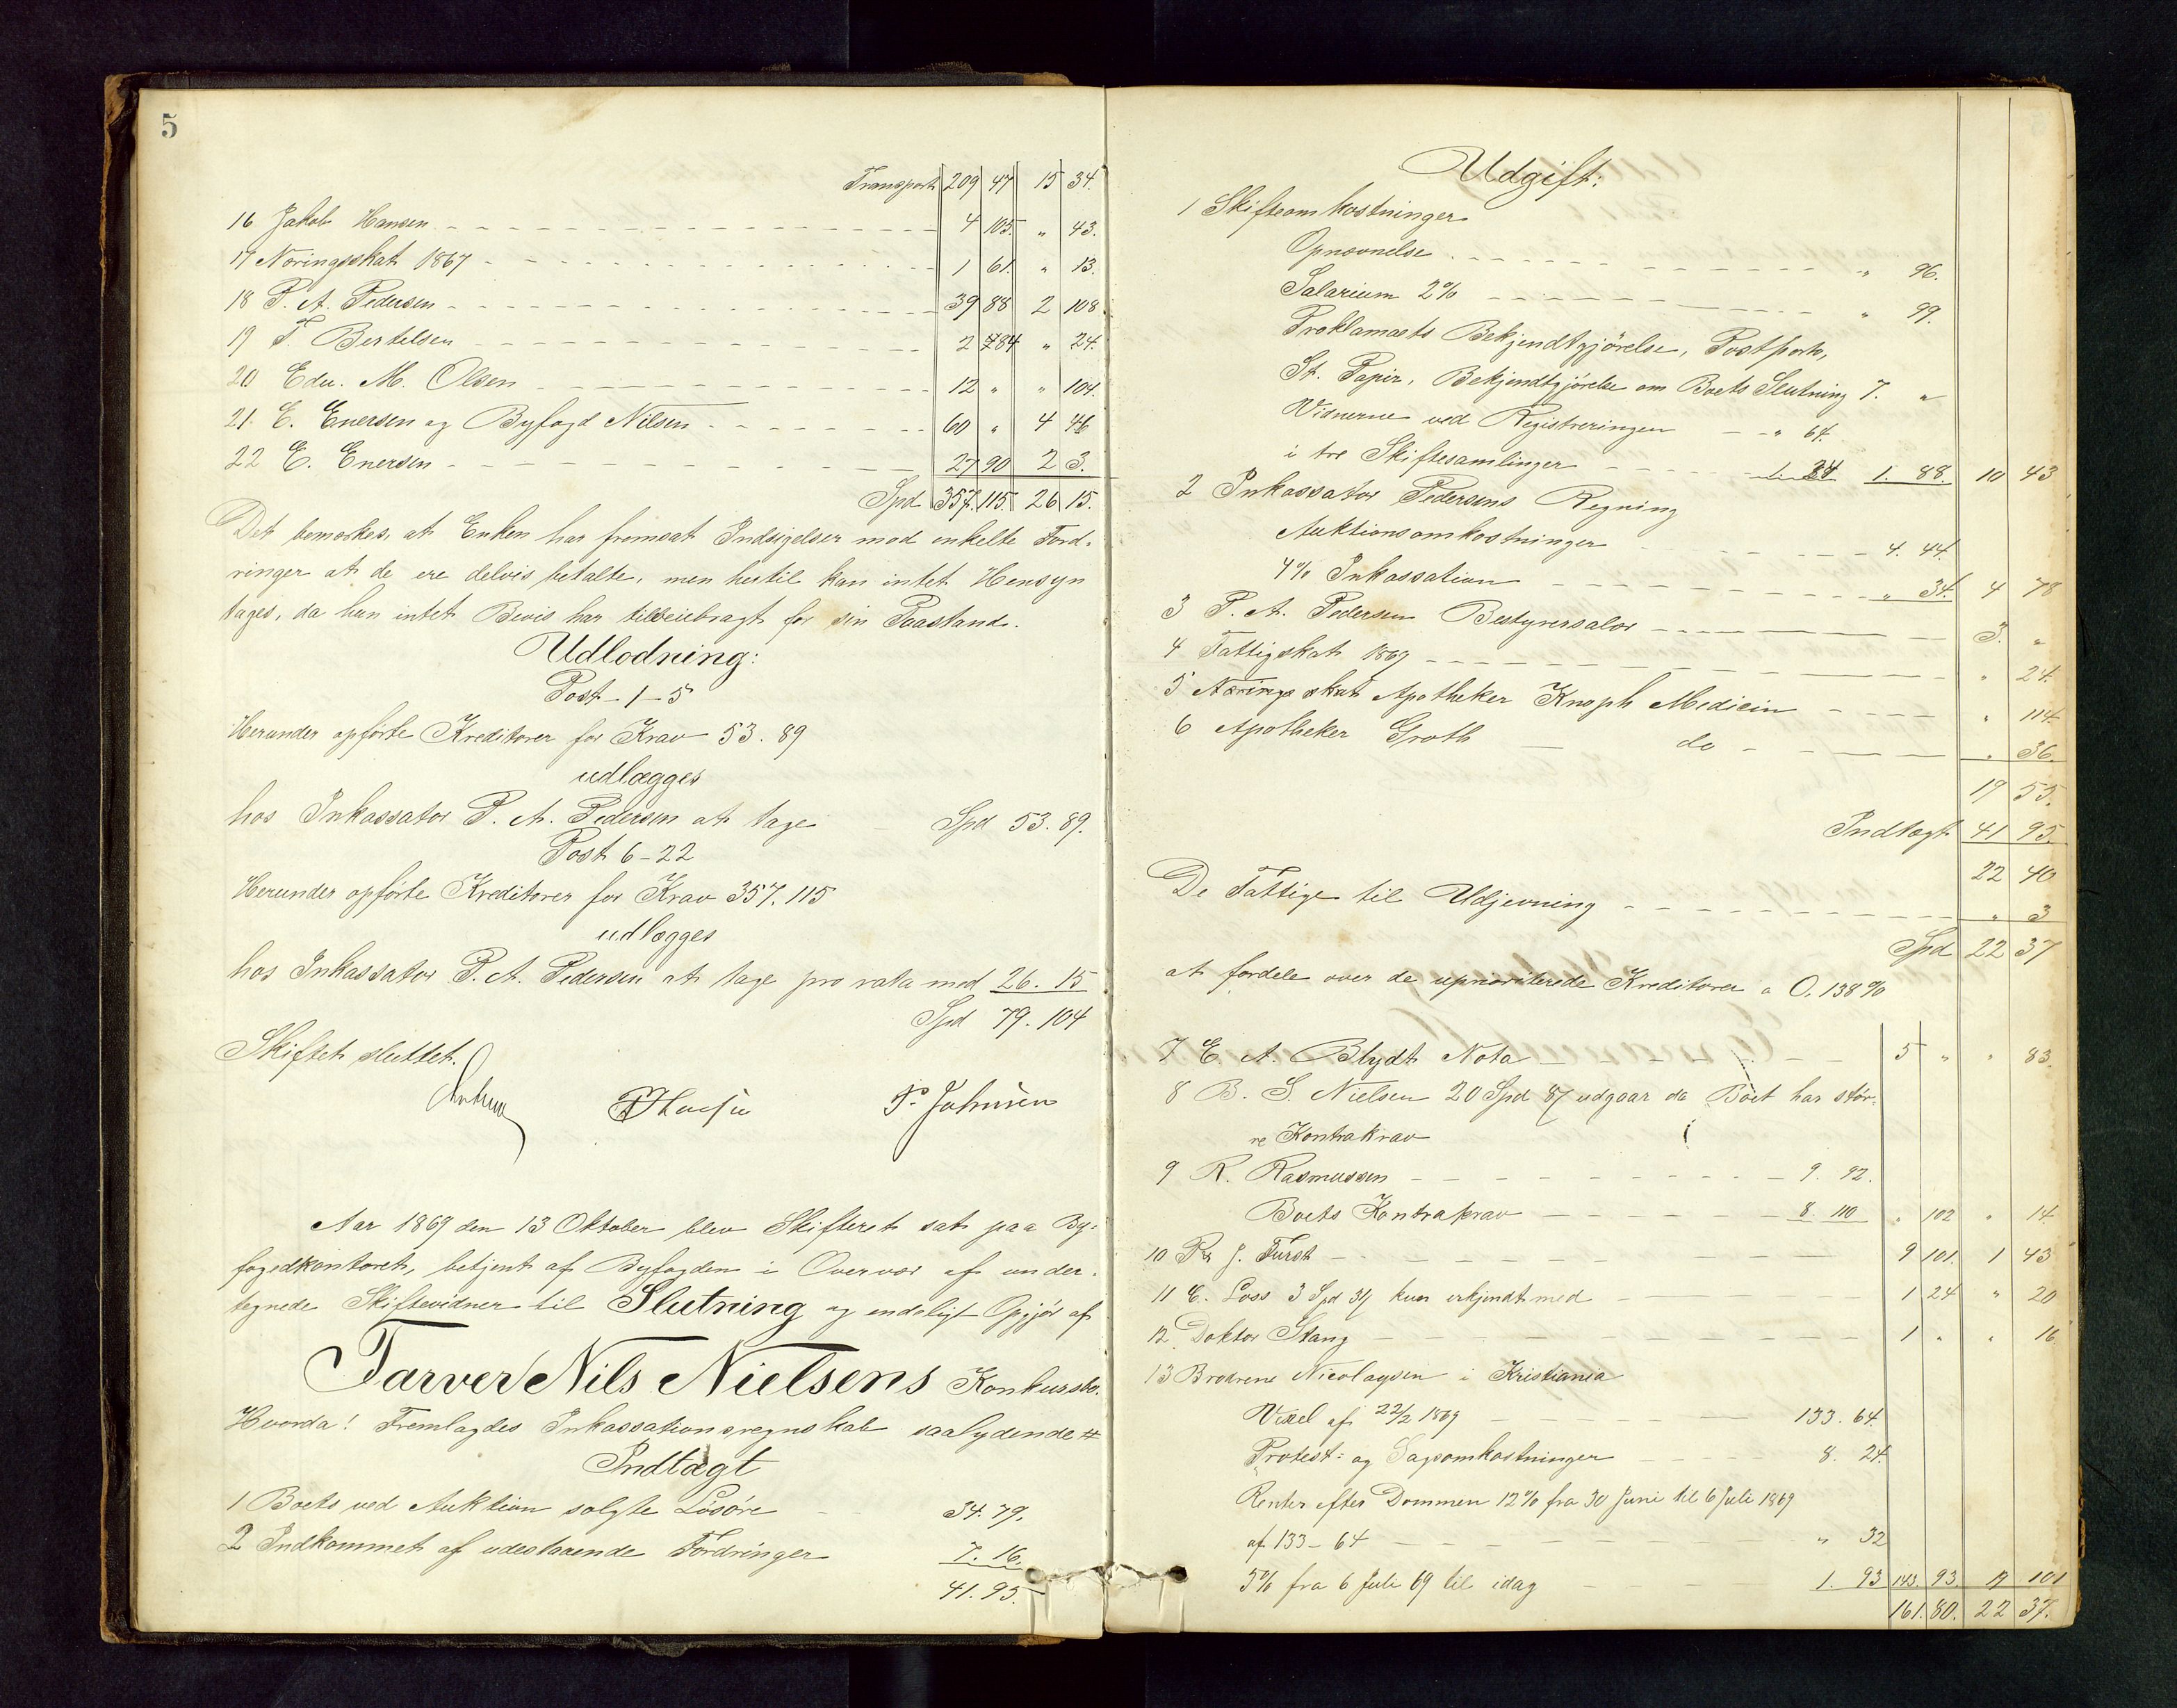 5
Transport 209 47 15 34.
16 Jakob Hansen 4 105. " 43.
17 Næringsskat 1867 1 61. " 13.
18 P. A. Pedersen 39 88 2 108.
19 T. Bertelsen 2 84 " 24.
20 Edv. M. Olsen 12 " " 104.
21. E. Enersen og Byfogd Nilsen 60 " 4 46
22 E. Enersen 27 90 2 3.
Spd 357. 115. 26 15.
Det bemærkes, at Enken har fremsat Indsigelser mod enkelte Ford-
ringer at de ere delvis betalte, men hertil kan intet Hensyn
tages, da hun intet Bevis har tilveiebragt for sin Paastand.
Udlodning:
Post - 1 - 5
Herunder opførte Kreditorer for Krav 53. 89
udlægges
hos Inkassator P. A. Pedersen at tage Spd 53. 89.
Post 6 - 22
Herunder opførte Kreditorer for Krav 357. 115
udlægges
hos Inkassator P. A. Pedersen at tage pro rata med 26. 15
Spd 79. 104
Skiftet sluttet.
P. Johnsen
Aar 1869 den 13 Oktober blev Skifteret sat paa By-
fogedkontoret, betjent af Byfogden i Overvær af under-
tegnede Skiftevidner til Slutning og endeligt Opgjør af
Farver Nils Nielsens Konkursbo.
Hvorda! Fremlagdes Inkassationsregnskab saalydende #
Indtægt
1 Boets ved Auktion solgte Løsøre 34. 79.
2 Indkommet af udestaaende Fordringer 7. 16.
41. 95.
Udgift:
1 Skifteomkostninger
Opnævnelse " 96.
Salarium 2% " 99.
Proklamaets Bekjendtgjørelse, Postporto,
St. Papir, Bekjendtgjørelse om Boets Slutning 7. "
Vidnerne ved Registreringen " 64.
i tre Skiftesamlinger 1. 24 1. 88. 10 43
2 Inkassator Pedersens Regning
Auktionsomkostninger 4. 44.
4% Inkassation " 34. 4 78
3 P. A. Pedersen Bestyrersalær 3. "
4 Fattigskat 1869 " 24.
5 Næringsskat Apotheker Knoph Medicin " 114.
6 Apotheker Groth do " 36.
19 55.
Indtægt 41 95.
22 40
De Fattige til Udjevning " 3
Spd 22 37
at fordele over de uprioriterede Kreditorer a 0,138%
7 E. A. Blydt Nota 5 " " 83.
8 B. S. Nielsen 20 Spd 87 udgaar da Boet har stør-
re Kontrakrav
9 R. Rasmussen 9. 92.
Boets Kontrakrav 8. 110 " 102 " 14
10 J. Fürst 9 101. 1 43
11 E. Loss 3 Spd 37 kun erkjendt med 1 24 " 20
12 Doktor Stang 1 " " 16
13 Brødrene Nicolaysen i Kristiania
Vexel af 22/2 1869 133. 64.
Protest- og Sagsomkostninger 8. 24.
Renter efter Dommen 12% fra 30 Juni til 6 Juli 1869
af 133 - 64 " 32
5% fra 6 Juli 69 til idag 1. 93 143. 93. 19 101
161. 80. 22 37.